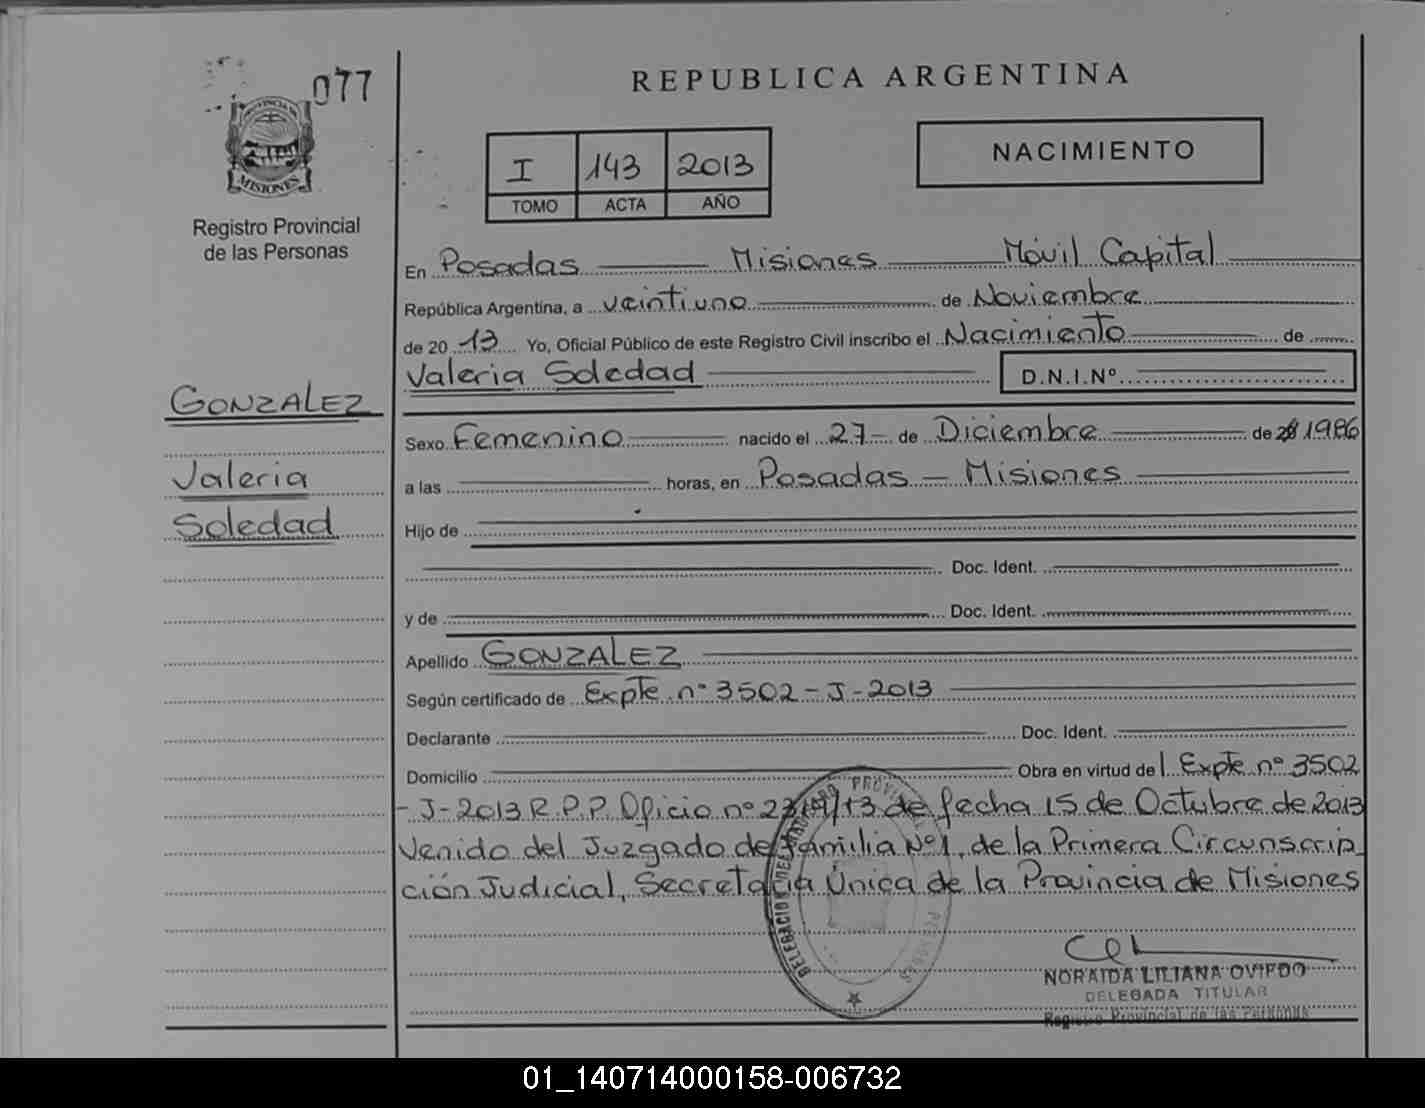 077
PROVINCIA DE
MISIONES
Registro Provincial
de las Personas
GONZALEZ
Valeria
Soledad
REPUBLICA ARGENTINA
I 143 2013
TOMO ACTA AÑO
NACIMIENTO
En Posadas Misiones Móvil Capital
República Argentina, a veintiuno de Noviembre
de 20 13 Yo, Oficial Público de este Registro Civil inscribo el Nacimiento de
Valeria Soledad D.N.I.Nº
Sexo Femenino nacido el 27 de Diciembre de 1986
a las horas, en Posadas - Misiones
Hijo de
Doc. Ident.
y de Doc. Ident.
Apellido GONZALEZ
Según certificado de Expte nº 3502-J-2013
Declarante Doc. Ident.
Domicilio Obra en virtud del Expte nº 3502
-J-2013 R.P.P. Oficio nº de fecha 15 de Octubre de 2013
Venido del Juzgado de Familia Nº1, de la Primera Circunscrip
ción Judicial, Secretaria Única de la Provincia de Misiones
NORAIDA LILIANA OVIEDO
DELEGADA TITULAR
Registro Provincial de las Personas
01_140714000158-006732